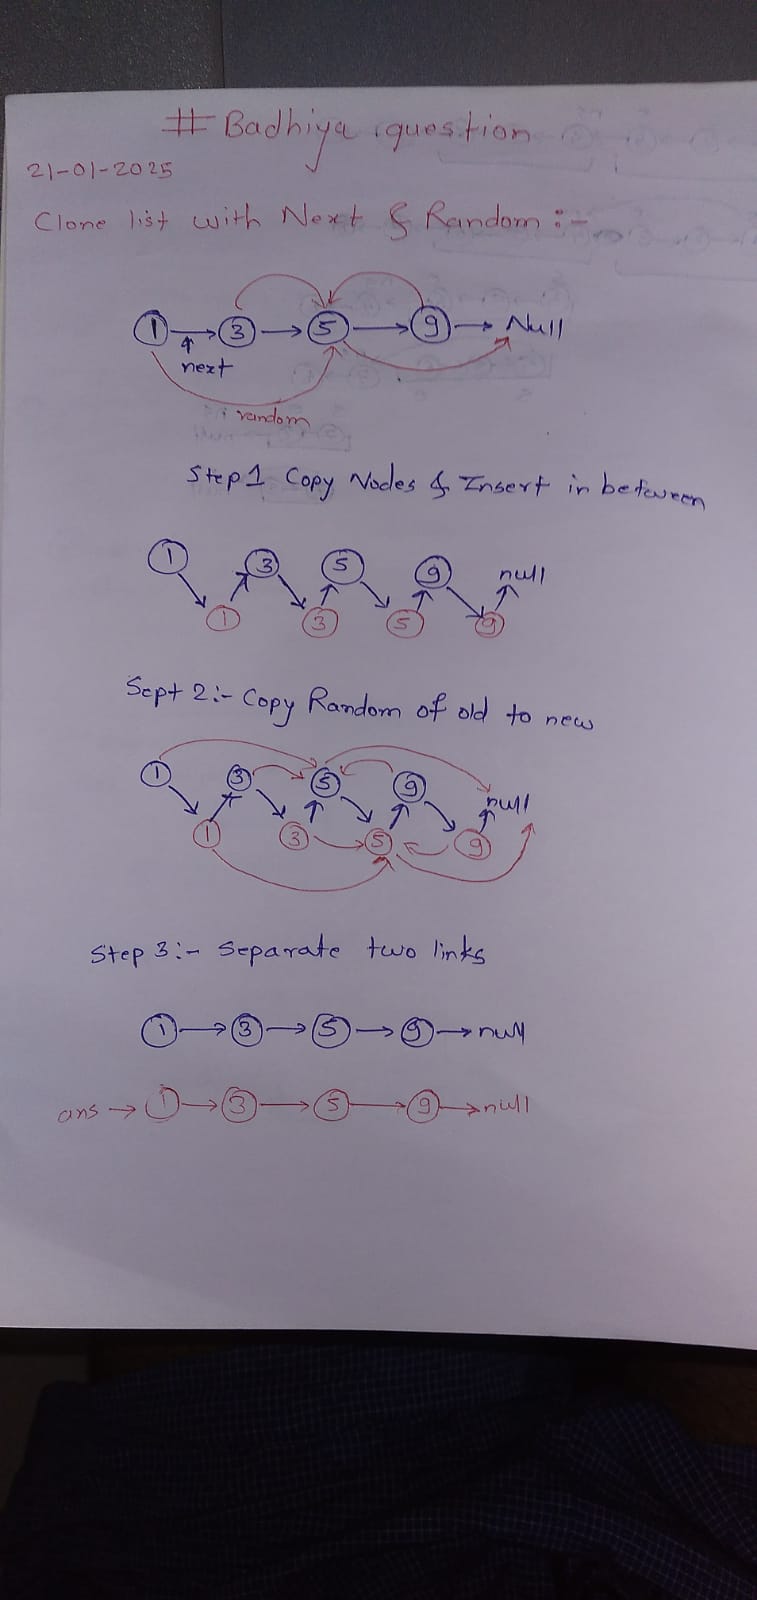 # Badhiya question
21-01-2025
Clone list with Next & Random :-
1 → 3 → 5 → 9 → Null
next
random
Step 1 Copy Nodes & Insert in between
1 3 5 9 null
1 3 5 9
Sept 2:- Copy Random of old to new
1 3 5 9 null
1 3 5 9
Step 3:- Separate two links
1 → 3 → 5 → 9 → null
ans → 1 → 3 → 5 → 9 → null